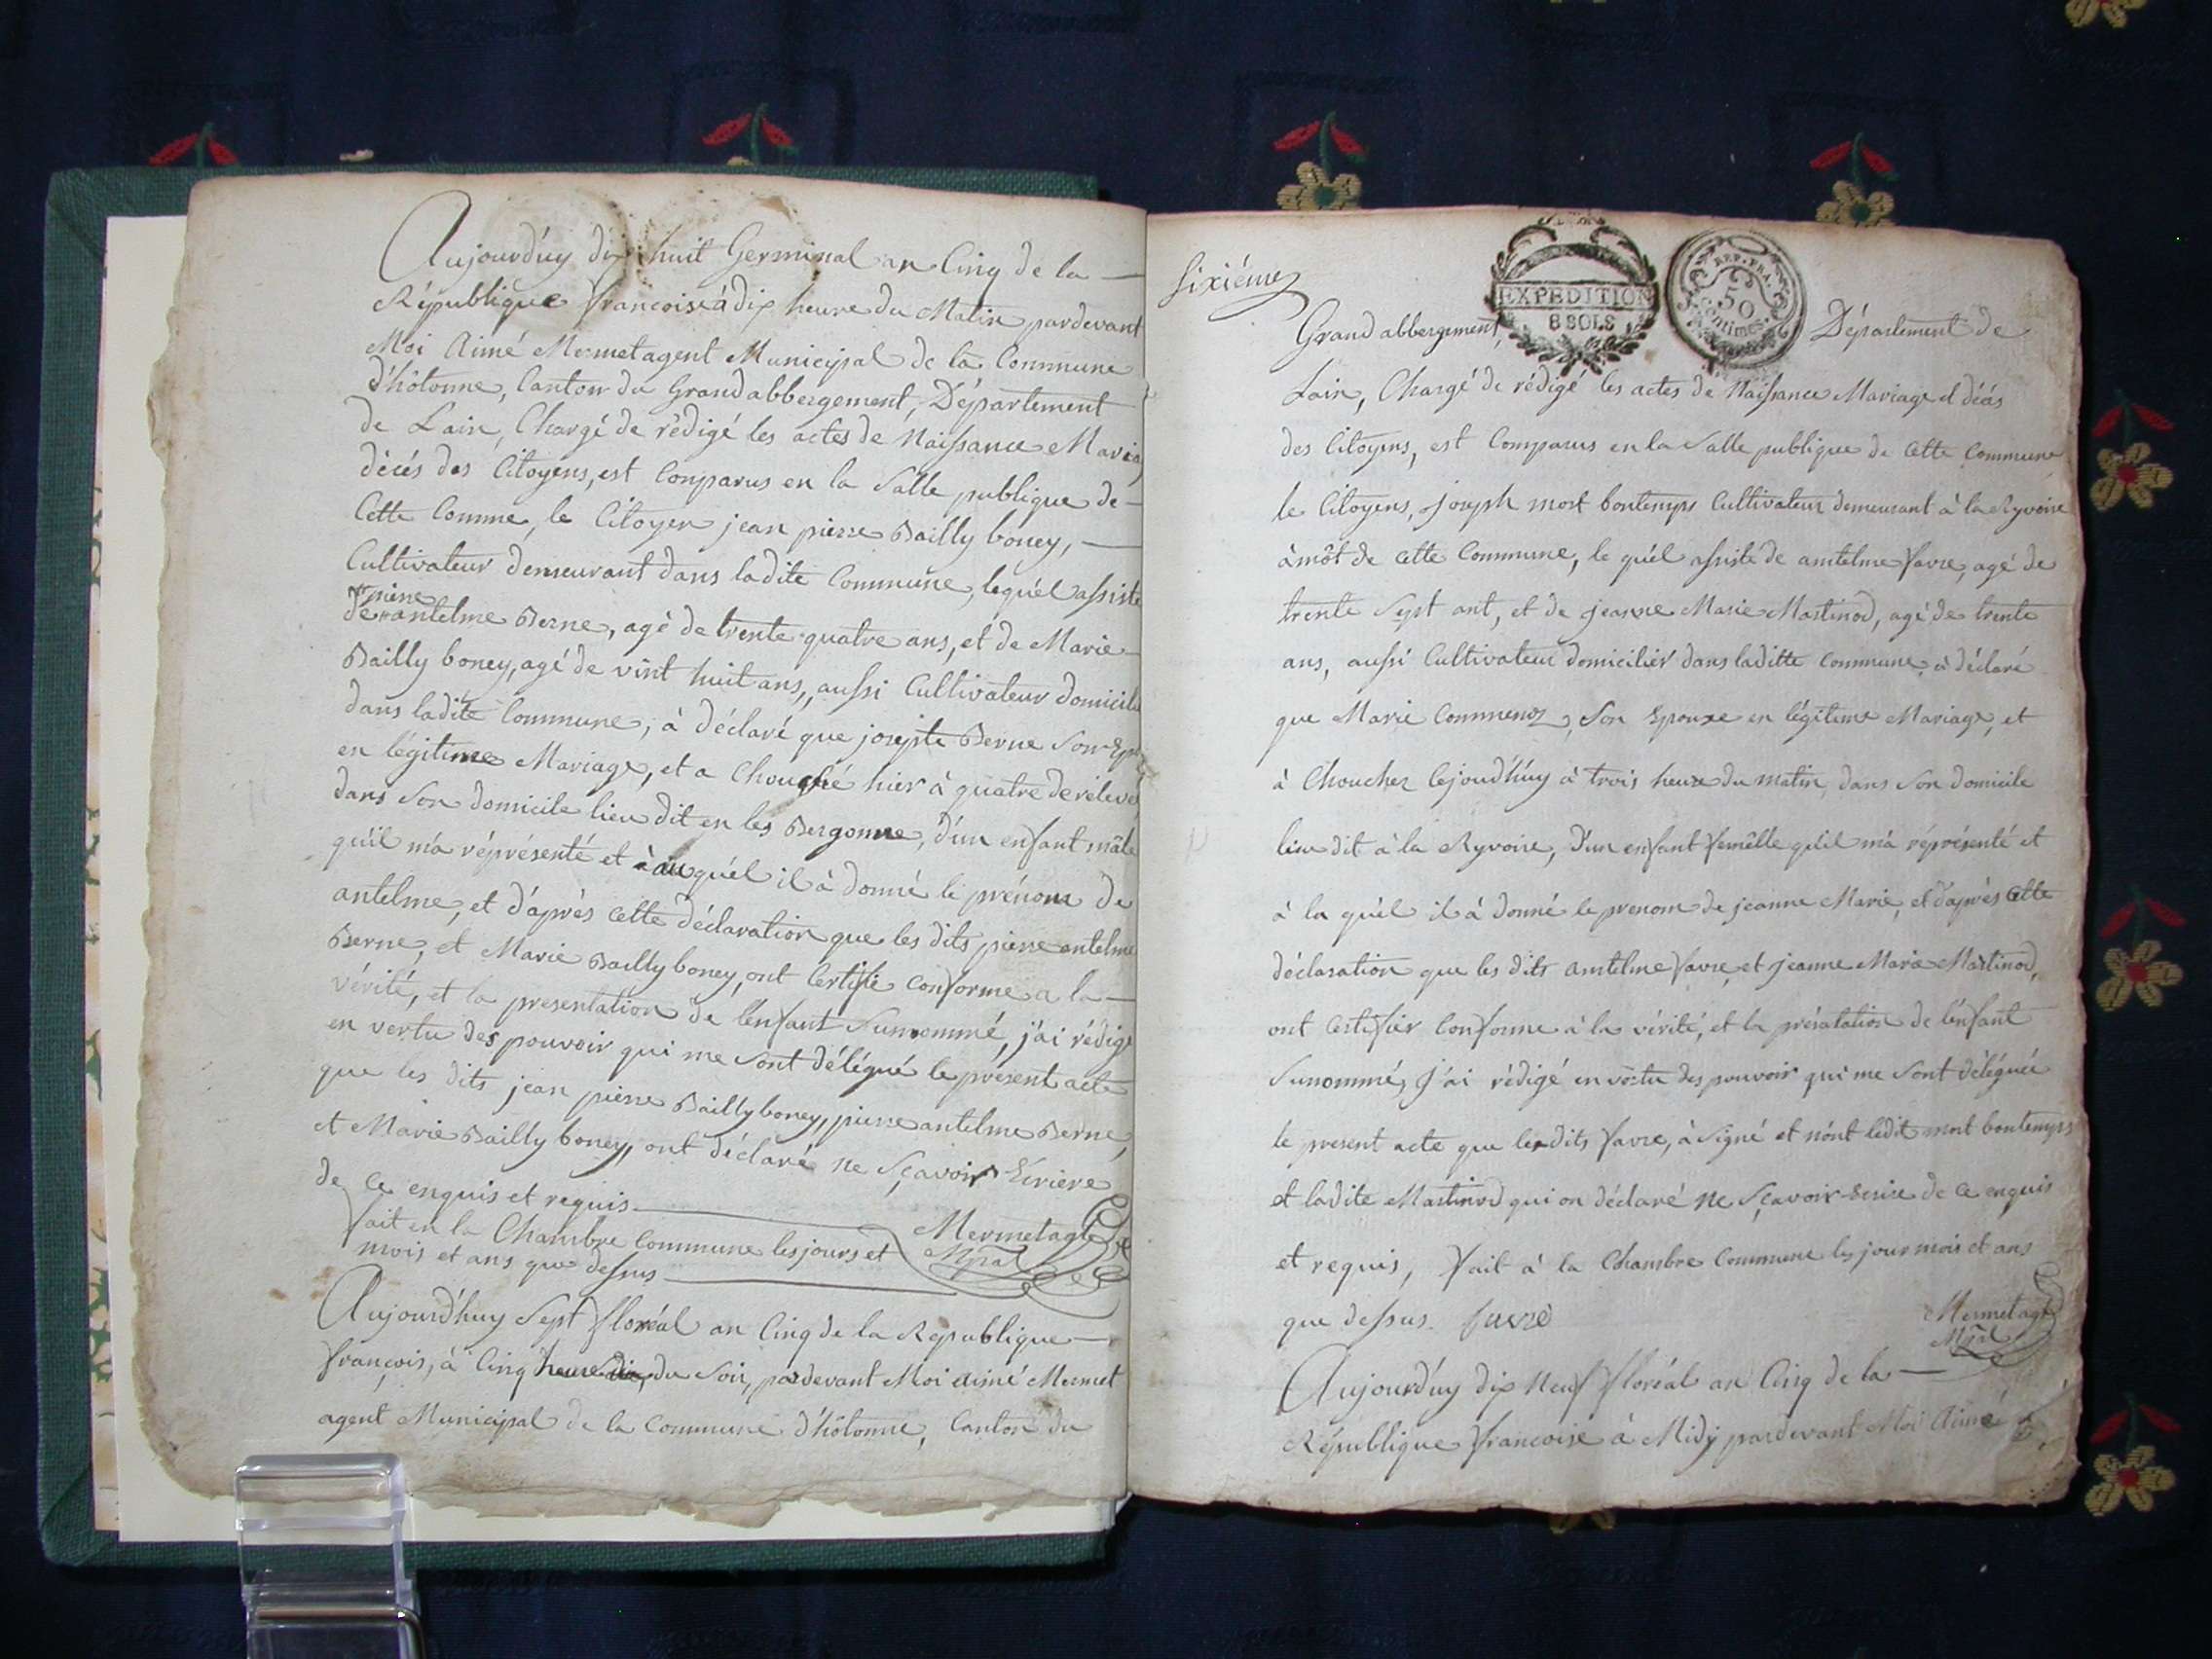 Aujourd'uy dix huit Germinal an Cinq de la
République francoise à dix heure du Matin pardevant
Moi Aimé Mermet agent Municipal de la Commune
d'hôtonne, Canton du Grand abbergement, Département
de Lain, Chargé de rédigé les actes de Naissance Maria
décés des Citoyens, est Conparus en la Salle publique de
Cette Comme, le Citoyen jean pierre Bailly boney,
Cultivateur demeurant dans ladite Commune, lequél assisté
pierre
de antelme Berne, agé de trente quatre ans, et de Marie
Bailly boney, agé de vint huit ans, aussi Cultivateur domicilié
dans ladite Commune, à déclaré que josepte Berne Son Ep
en légitime Mariage, et a Chouché hier à quatre de rélevé
dans Son domicile lieu dit en les Bergonne, d'un enfant mâle
qu'il m'à réprésenté et à auquél il à donné le prénom de
antelme, et d'après cette déclaration que les dits pierre antelme
Berne, et Marie Bailly boney, ont Certifié conforme a la
vérité, et la presentation de l'enfant Surnommé, j'ai rédigé
en vertu des pouvoir qui me Sont délégué le présent acte
que les dits jean pierre Bailly boney, pierre antelme Berne,
et Marie Bailly boney, ont déclaré ne Sçavoir Ecriere
de ce enquis et requis
fait en la Chambre Commune les jours et
mois et ans que dessus
Mermet agt
Mpal
Aujourd'huy Sept floréal an Cinq de la République
françois, à Cinq heure du Soir, pardevant Moi aimé Mermet
agent Municipal de la Commune d'hôtonne, Canton du
Sixiéme
EXPEDITION
8 SOLS
REP. FRA.
50
Centimes.
Grand abbergement, Département de
Lain, Chargé de rédigé les actes de Naissance Mariage et décés
des Citoyens, est Comparus en la Salle publique de Cette Commune
le Citoyens, joseph mort bontemps Cultivateur demeurant à la Ryvoire
à môt de Cette Commune, le quél assisté de amtelme favre, agé de
trente Sept ant, et de jeanne Marie Martinod, agé de trente
ans, aussi Cultivateur domicilier dans laditte Commune, à déclaré
que Marie Commenoz, Son Epouse en légitime Mariage, et
à Choucher lejoud'húy à trois heure du matin, dans Son domicile
lieu dit à la Ryvoire, d'un enfant femêlle qu'il m'à réprésenté et
à la quél il à donné le prenom de jeanne Marie, et d'après Cette
déclaration que les dits amtelme favre, et jeanne Marie Martinod,
ont Certifier Conforme à la vérité, et la préséntation de l'énfant
Sunommé, j'ai rédigé en vértu des pouvoir qui me Sont déléguée
le present acte que lesdits favre, à Signé et nónt ledit mort bontemps
et ladite Martinod qui on déclaré ne Sçavoir Ecrire de ce enquis
et requis, fait à la Chambre Commune les jour mois et ans
que dessus. favre
Mermet agt
Mpal
Aujourd'uy dix Neuf floréal an Cinq de la
République francoise à Midy pardevant Moi Aimé